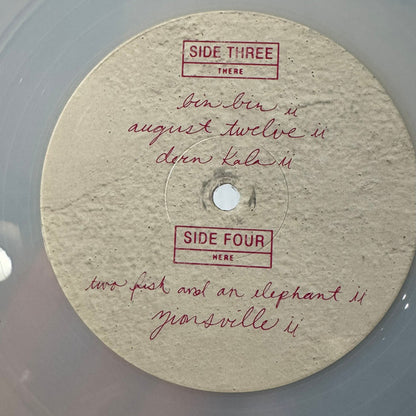 SIDE THREE
THERE
bin bin ii
august twelve ii
dern kala ii
SIDE FOUR
HERE
two fish and an elephant ii
zionsville ii